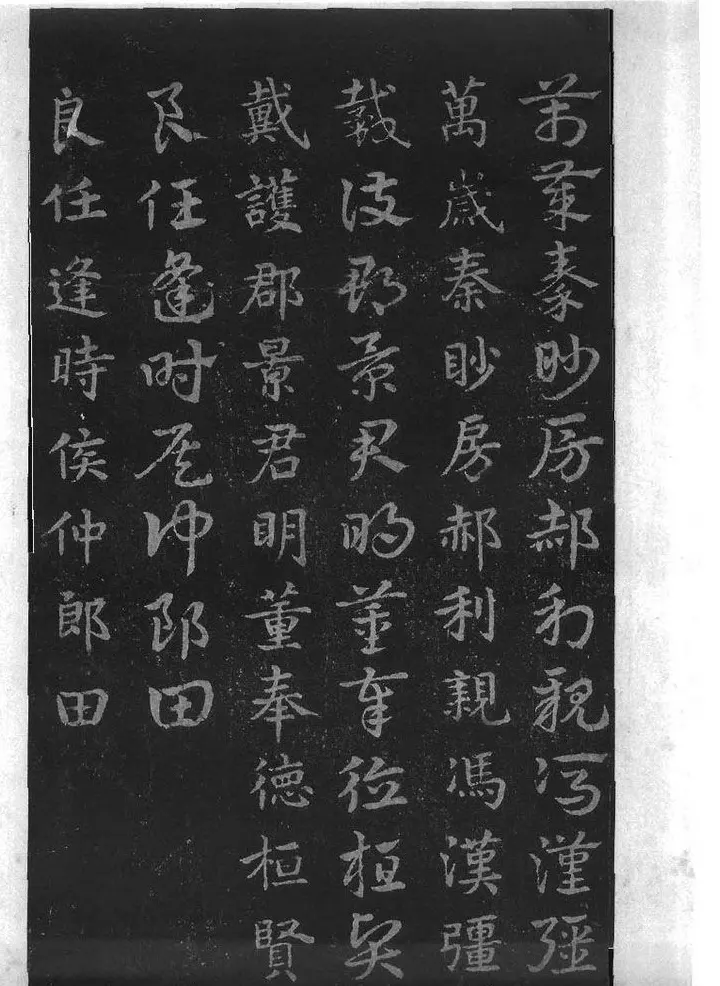 萬歲秦眇房郝利親馮漢彊
萬歲秦眇房郝利親馮漢彊
戴護郡景君明董奉德桓賢
戴護郡景君明董奉德桓賢
良任逢時侯仲郎田
良任逢時侯仲郎田